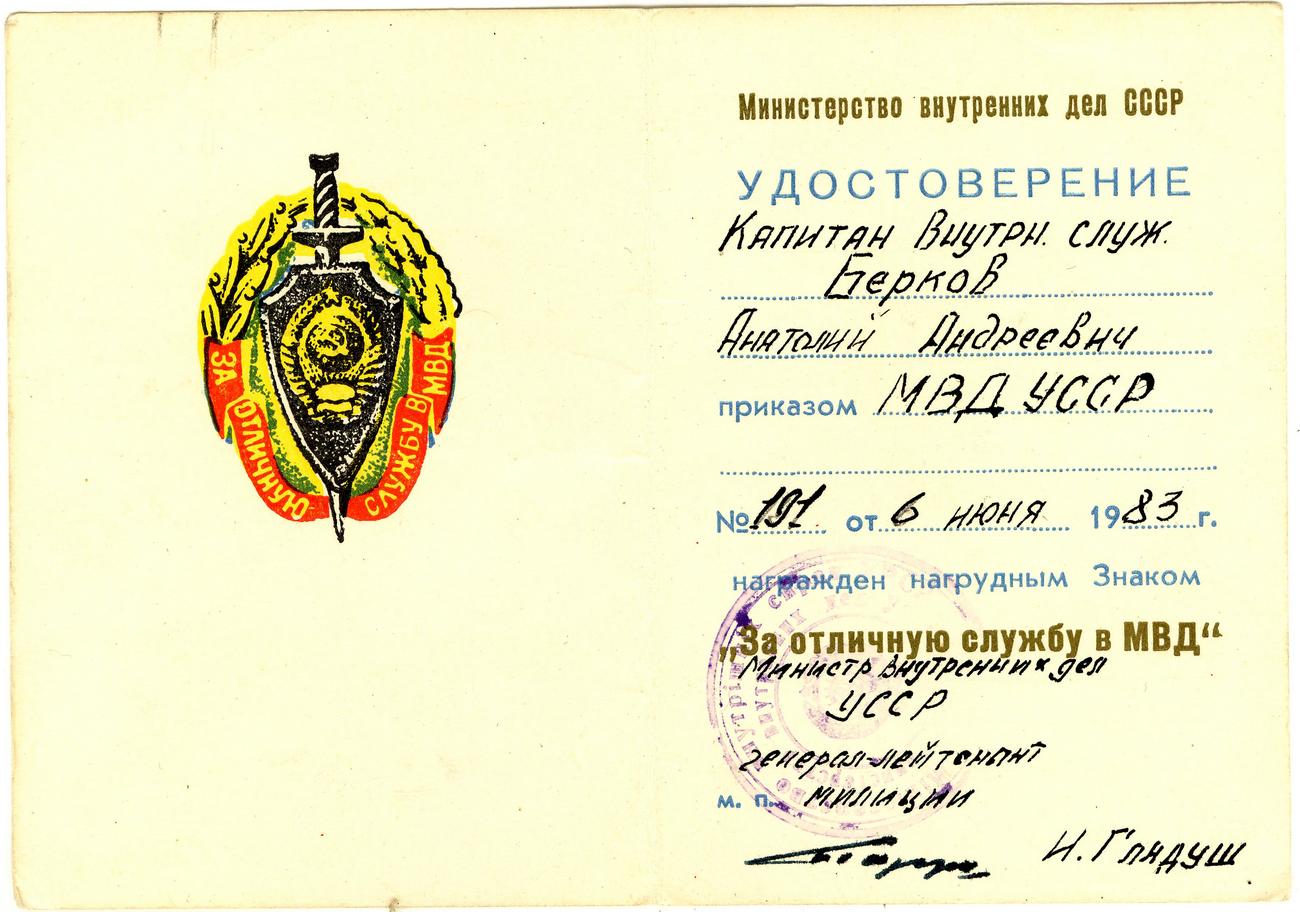 ЗА ОТЛИЧНУЮ СЛУЖБУ В МВД
Министерство внутренних дел СССР
УДОСТОВЕРЕНИЕ
Капитан Внутрн. служ.
Берков
Анатолий Андреевич
приказом МВД УССР
№ 191 от 6 июня 1983 г.
награжден нагрудным Знаком
„За отличную службу в МВД“
Министр внутренних дел
УССР
генерал-лейтенант
м. п. милиции
И. Гладуш